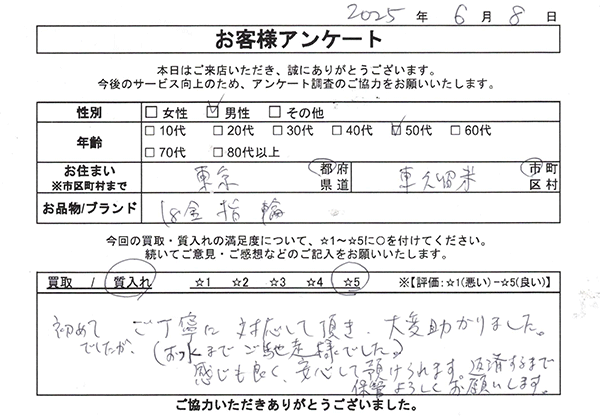 2025 年 6 月 8 日
お客様アンケート
本日はご来店いただき、誠にありがとうございます。
今後のサービス向上のため、アンケート調査のご協力をお願いいたします。
性別 □女性 ☑男性 □その他
年齢 □10代 □20代 □30代 □40代 ☑50代 □60代
□70代 □80代以上
お住まい 東京 都府 東久留米 市町
※市区町村まで 県道 区村
お品物/ブランド 18金 指輪
今回の買取・質入れの満足度について、☆1～☆5に○を付けてください。
続いてご意見・ご感想などのご記入をお願いいたします。
買取 / 質入れ ☆1 ☆2 ☆3 ☆4 ☆5 ※【評価:☆1(悪い)－☆5(良い)】
初めて ご丁寧に 対応して頂き、大変助かりました。
でしたが、(お水までご馳走様でした。)
感じも良く、安心して預けられます。返済するまで
保管よろしくお願いします。
ご協力いただきありがとうございました。